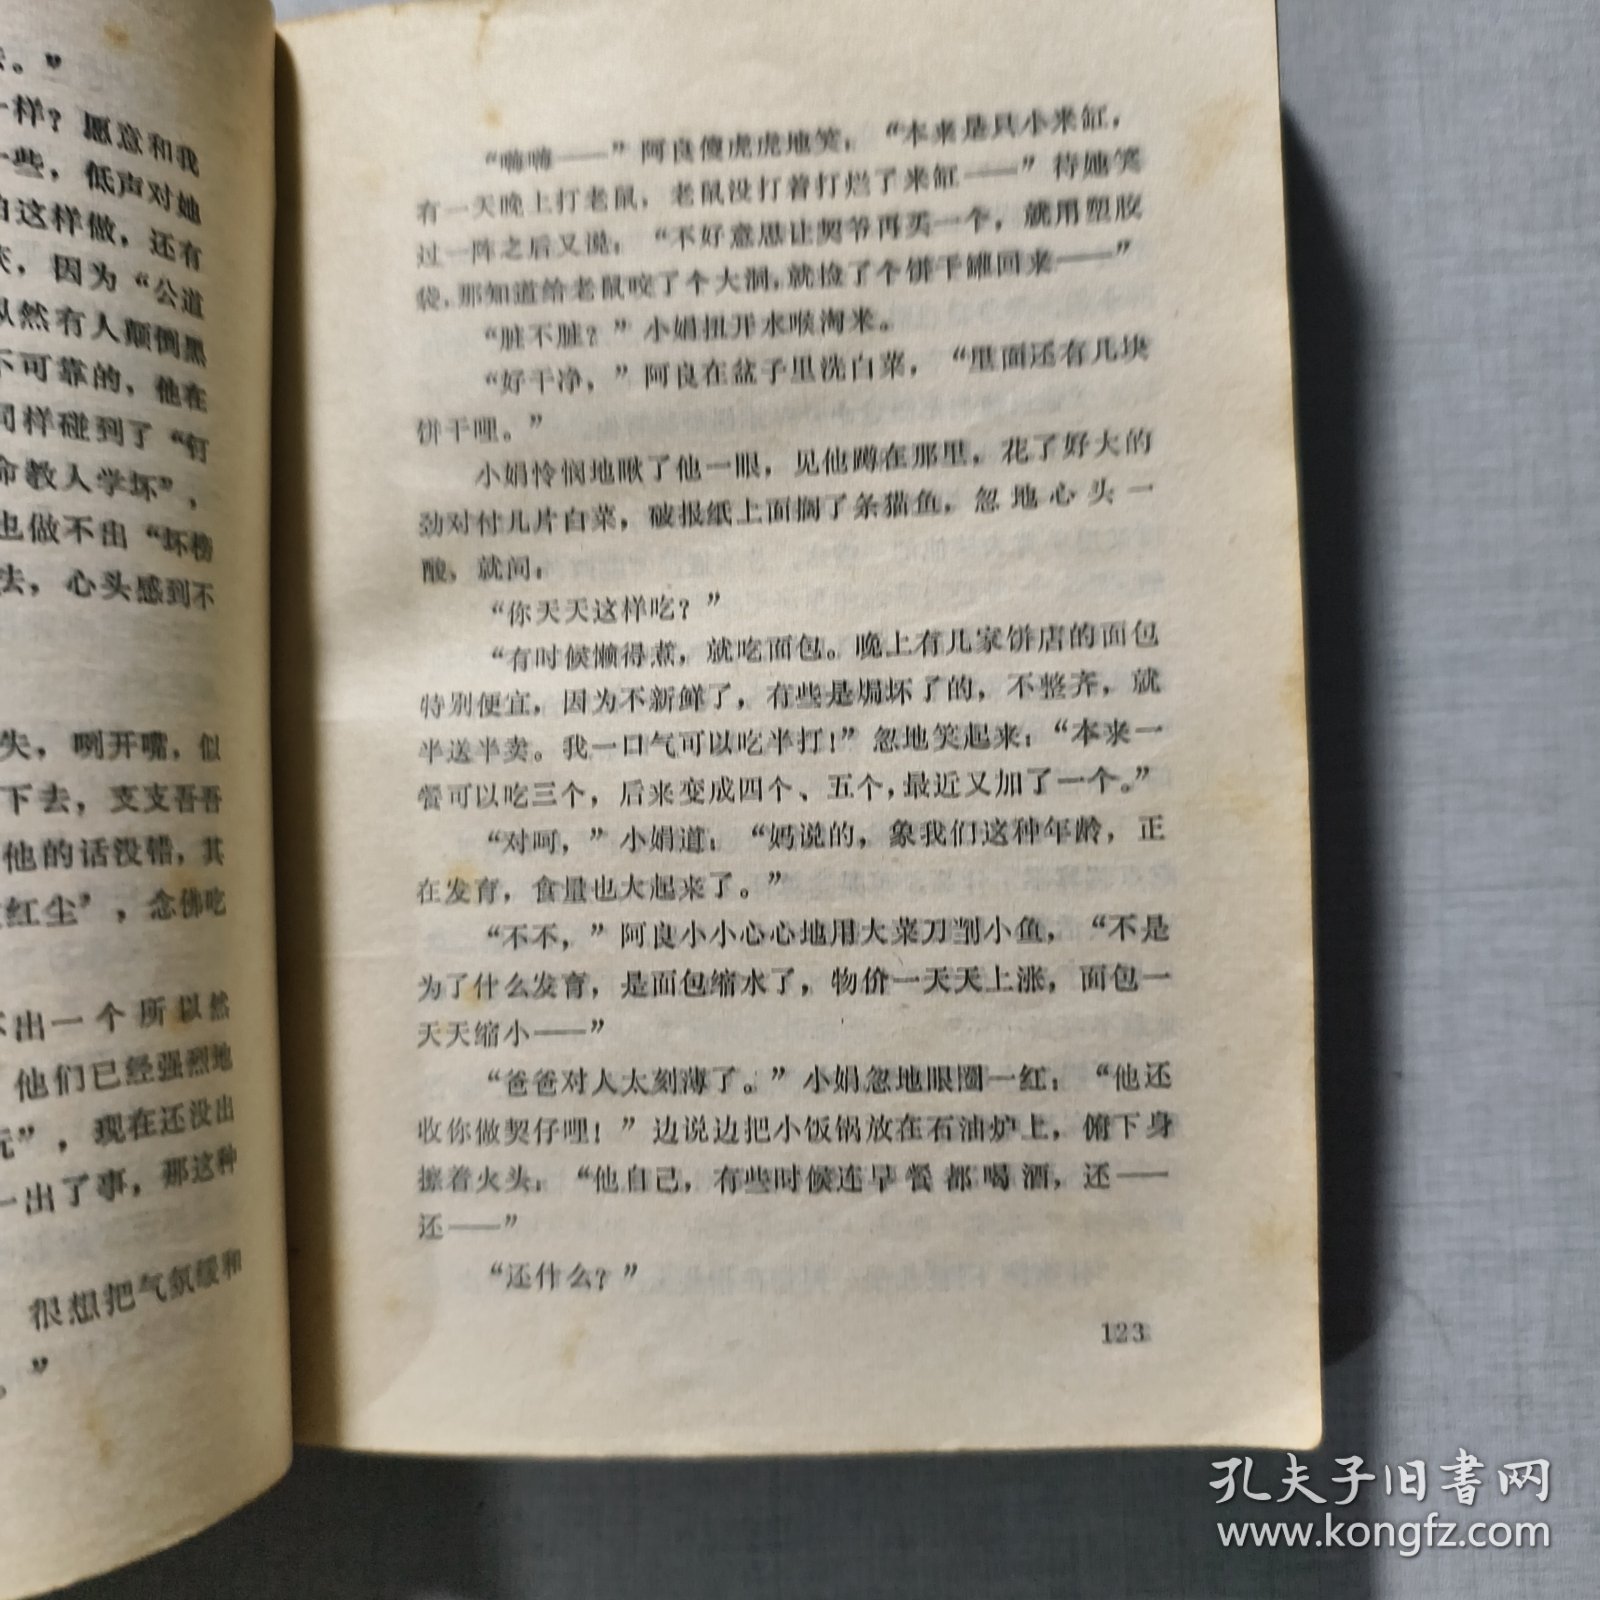 去。”
一样？愿意和我
一些，低声对她
白这样做，还有
因为“公道
然有人颠倒黑
不可靠的，他在
同样碰到了“有
命教人学坏”，
也做不出“坏榜
去，心头感到不
失，咧开嘴，似
下去，支支吾吾
他的话没错，其
红尘”，念佛吃
出一个所以然
他们已经强烈地
元”，现在还没出
一出了事，那这种
很想把气氛缓和
。”
“嗨嗨——”阿良傻虎虎地笑，“本来是只小米缸，
有一天晚上打老鼠，老鼠没打着打烂了米缸——”待她笑
过一阵之后又说：“不好意思让契爷再买一个，就用塑胶
袋，那知道给老鼠咬了个大洞，就捡了个饼干罐回来——”
“脏不脏？”小娟扭开水喉淘米。
“好干净，”阿良在盆子里洗白菜，“里面还有几块
饼干哩。”
小娟怜悯地瞅了他一眼，见他蹲在那里，花了好大的
劲对付几片白菜，破报纸上面搁了条猫鱼，忽地心头一
酸，就问：
“你天天这样吃？”
“有时候懒得煮，就吃面包。晚上有几家饼店的面包
特别便宜，因为不新鲜了，有些是焗坏了的，不整齐，就
半送半卖。我一口气可以吃半打！”忽地笑起来：“本来一
餐可以吃三个，后来变成四个、五个，最近又加了一个。”
“对呵，”小娟道：“妈说的，象我们这种年龄，正
在发育，食量也大起来了。”
“不不，”阿良小小心心地用大菜刀㓥小鱼，“不是
为了什么发育，是面包缩水了，物价一天天上涨，面包一
天天缩小——”
“爸爸对人太刻薄了。”小娟忽地眼圈一红：“他还
收你做契仔哩！”边说边把小饭锅放在石油炉上，俯下身
擦着火头：“他自己，有些时候连早餐都喝酒，还——
还——”
“还什么？”
123
孔夫子旧书网
www.kongfz.com